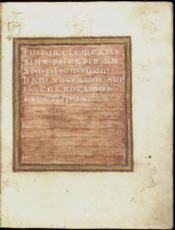 IGITUR CLEMENTIS
SIME PATER PER IHM
XPM FILIUM TUUM
DNM NOSTRUM SUP
PLICES ROGAMUS
ET PETIMUS